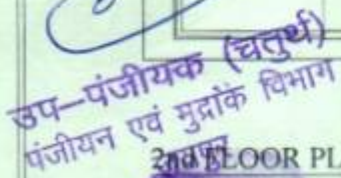 उप–पंजीयक (चतुर्थ)
पंजीयन एवं मुद्रांक विभाग
2nd FLOOR PL